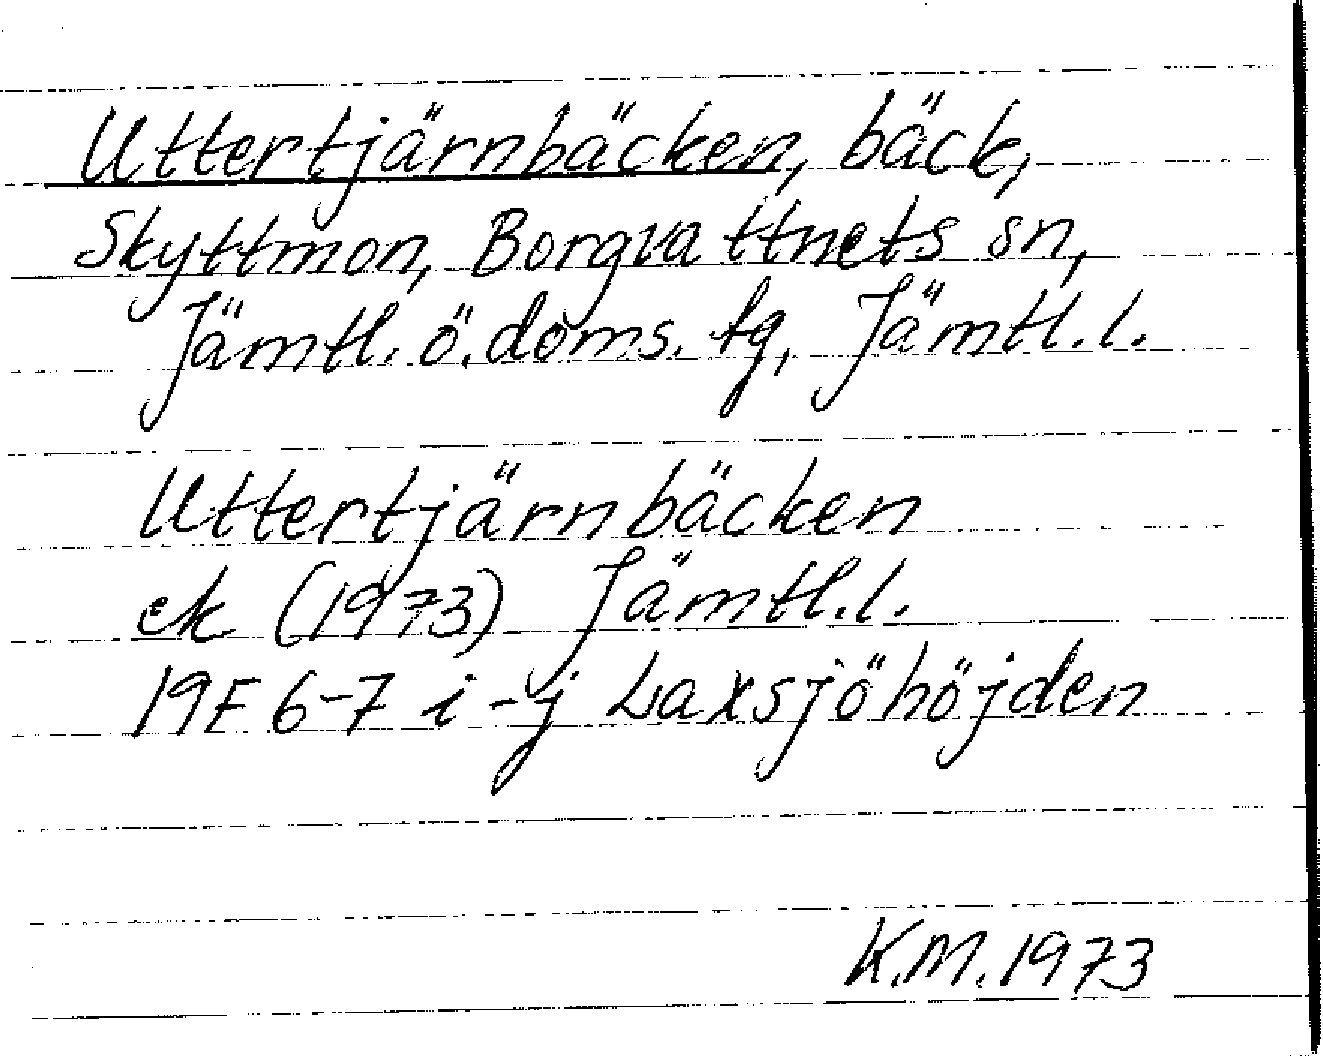 Uttertjärnbäcken, bäck,
Skyttmon, Borgvattnets sn,
Jämtl. ö. doms. tg, Jämtl. l.
Uttertjärnbäcken
ek (1973) Jämtl. l.
19F 6-7 i-j Laxsjöhöjden
K.M. 1973